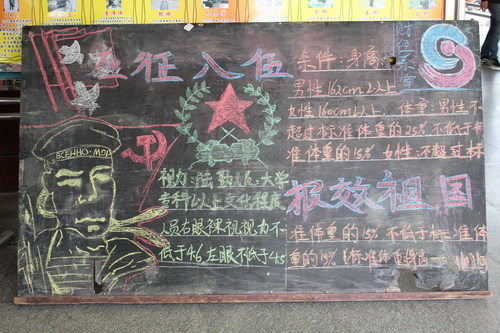 应征入伍
条件:身高:
男性162cm以上
女性160cm以上 体重:男性不
超过标准体重的25%不低于标
准体重的15% 女性:不超过标
ВСЕННО-МОР
视力:陆勤人员 大学
专科以上文化程度
人员右眼裸视视力不
低于4.6左眼不低于4.5
报效祖国
准体重的15% 不低于标准体
重的15%(标准体重身高一110)kg